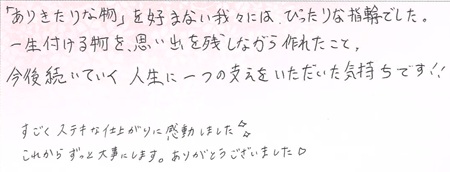 「ありきたりな物」を好まない我々には、ぴったりな指輪でした。
一生付ける物を、思い出を残しながら作れたこと、
今後続いていく人生に一つの支えをいただいた気持ちです!!
すごくステキな仕上がりに感動しました
これからずっと大事にします。ありがとうございました